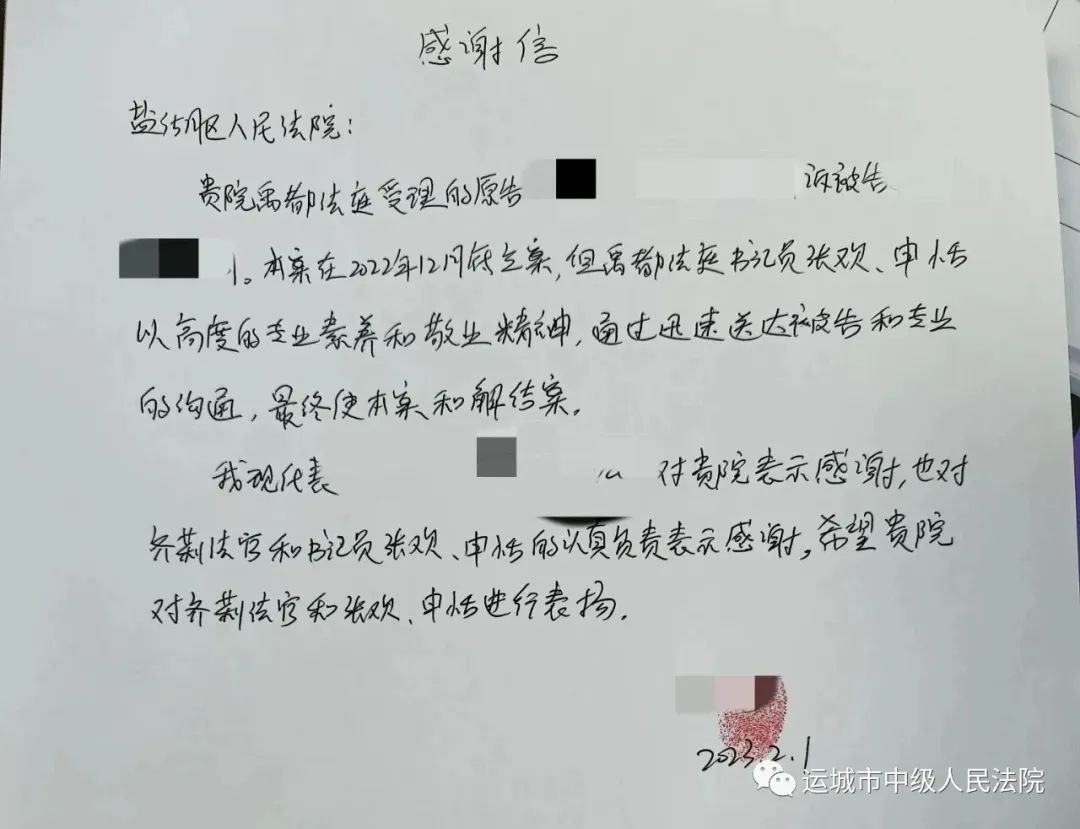 感谢信
盐湖区人民法院：
贵院禹都法庭受理的原告 诉被告
。本案在2022年12月底立案，但禹都法庭书记员张欢、申恬
以高度的专业素养和敬业精神，通过迅速送达被告和专业
的沟通，最终使本案和解结案。
我现代表 对贵院表示感谢，也对
乔荆法官和书记员张欢、申恬的认真负责表示感谢。希望贵院
对乔荆法官和张欢、申恬进行表扬。
2023.2.1
运城市中级人民法院